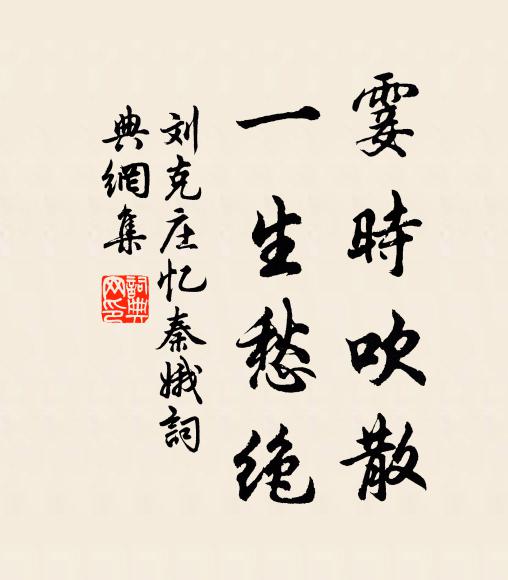 霎時吹散
一生愁绝
刘克庄忆秦娥詞
典網集
詞典
网印